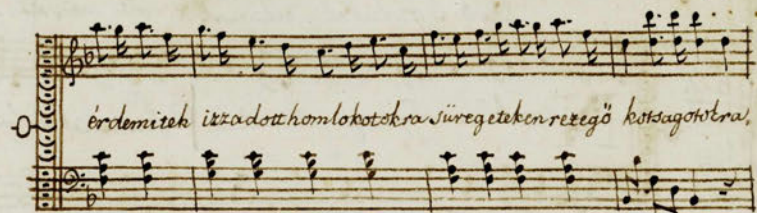 érdemitek izzadott homlokotokra süvegeteken rezegő kotsagotokra,